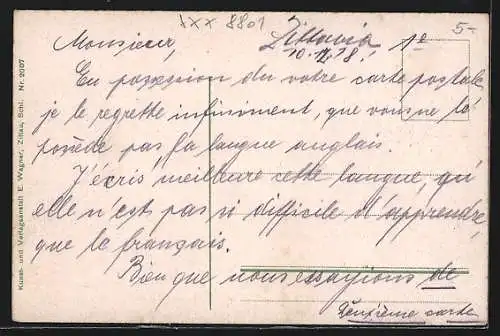 xxx 8801
5-
Monsieur,
Zittavia
1e
10. II. 28.
En possession du votre carte postale
je le regrette infiniment, que vous ne
possède pas la langue anglais.
J'écris meilleure cette langue, qu'
elle n'est pas si difficile d'apprendre,
que le français.
Bien que nous essayions de
Deuxième carte
Kunst- und Verlagsanstalt E. Wagner, Zittau, Schl. Nr. 2007